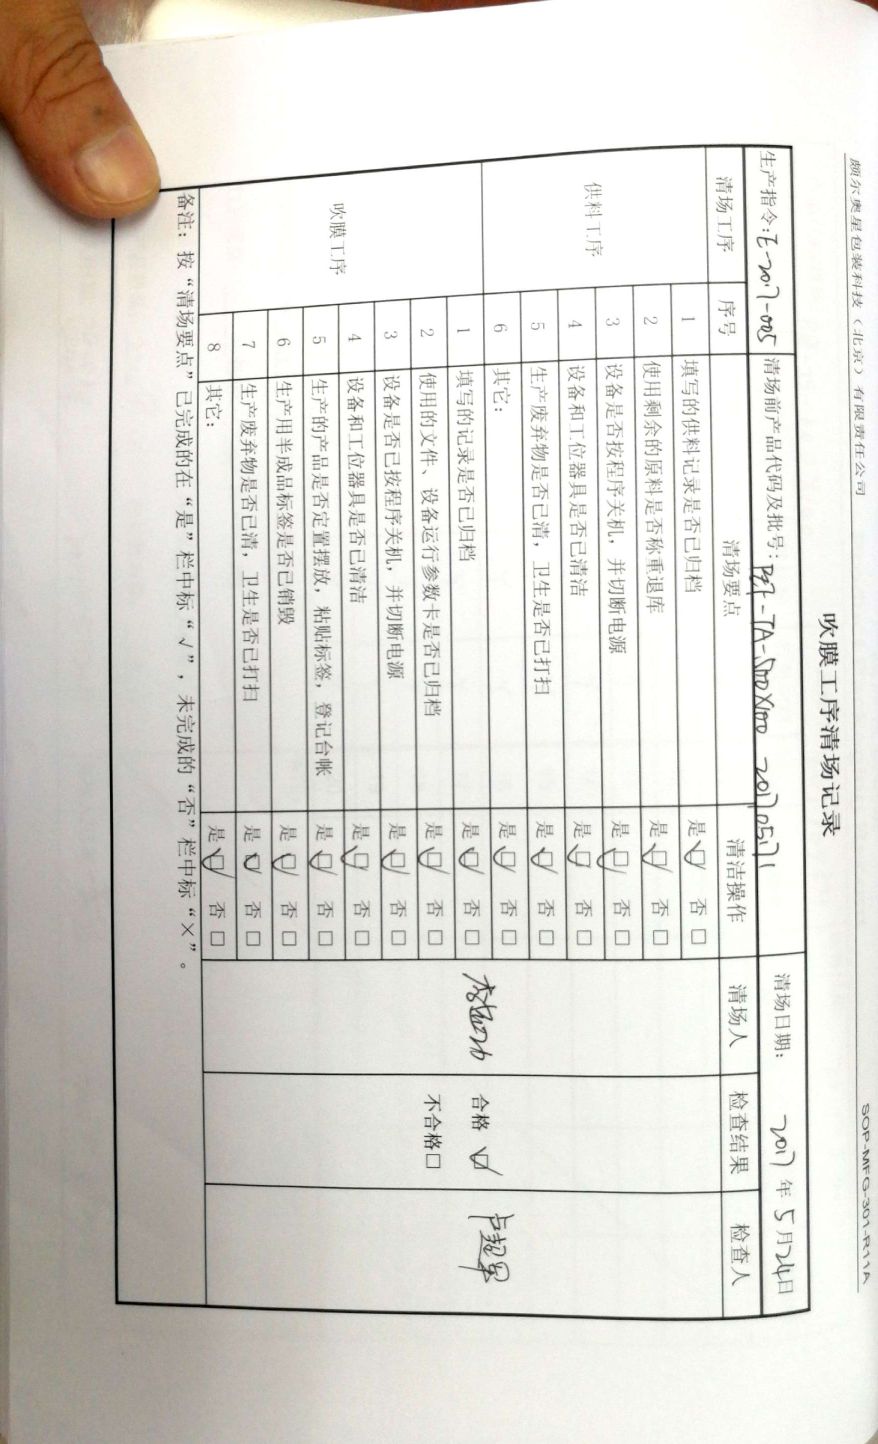 颇尔奥星包装科技（北京）有限责任公司 SOP-MFG-301-R11A
吹膜工序清场记录
生产指令:E-2017-005 清场前产品代码及批号: -TA-500X100 201705171 清场日期: 2017 年 5 月 24 日
清场工序 序号 清场要点 清洁操作 清场人 检查结果 检查人
供料工序
1 填写的供料记录是否已归档 是☑ 否□
2 使用剩余的原料是否称重退库 是☑ 否□
3 设备是否按程序关机，并切断电源 是☑ 否□
4 设备和工位器具是否已清洁 是☑ 否□
5 生产废弃物是否已清，卫生是否已打扫 是☑ 否□
6 其它: 是☑ 否□
吹膜工序
1 填写的记录是否已归档 是☑ 否□
2 使用的文件、设备运行参数卡是否已归档 是☑ 否□
3 设备是否已按程序关机，并切断电源 是☑ 否□
4 设备和工位器具是否已清洁 是☑ 否□
5 生产的产品是否定置摆放，粘贴标签，登记台帐 是☑ 否□
6 生产用半成品标签是否已销毁 是☑ 否□
7 生产废弃物是否已清，卫生是否已打扫 是☑ 否□
8 其它: 是☑ 否□
合格 ☑
不合格□
卢超军
备注: 按“清场要点”已完成的在“是”栏中标“√”，未完成的“否”栏中标“×”。